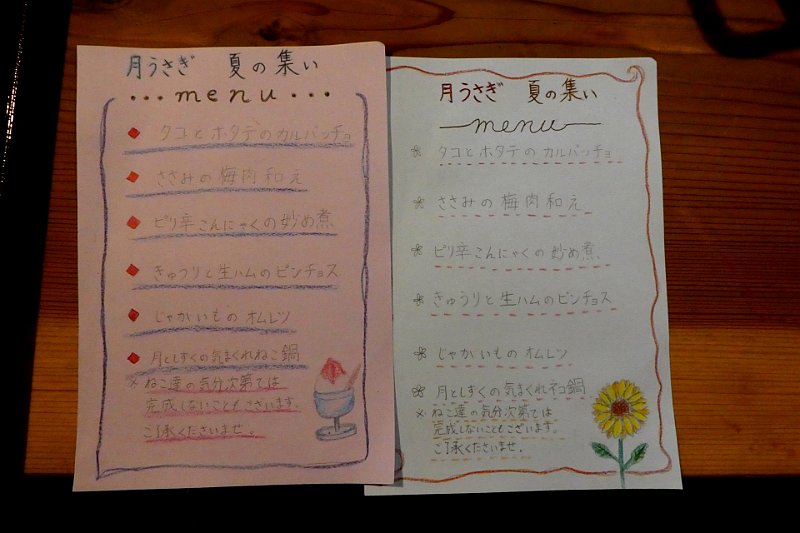 月うさぎ 夏の集い
・・・menu・・・
タコとホタテのカルパッチョ
ささみの梅肉和え
ピリ辛こんにゃくの妙め煮
きゅうりと生ハムのピンチョス
じゃがいものオムレツ
月としずくの気まぐれねこ鍋
※ねこ達の気分次第では
完成しないこともございます。
ご了承くださいませ。
月うさぎ 夏の集い
menu
タコとホタテのカルパッチョ
ささみの梅肉和え
ピリ辛こんにゃくの妙め煮
きゅうりと生ハムのピンチョス
じゃがいものオムレツ
月としずくの気まぐれネコ鍋
※ねこ達の気分次第では
完成しないこともございます。
ご了承くださいませ。